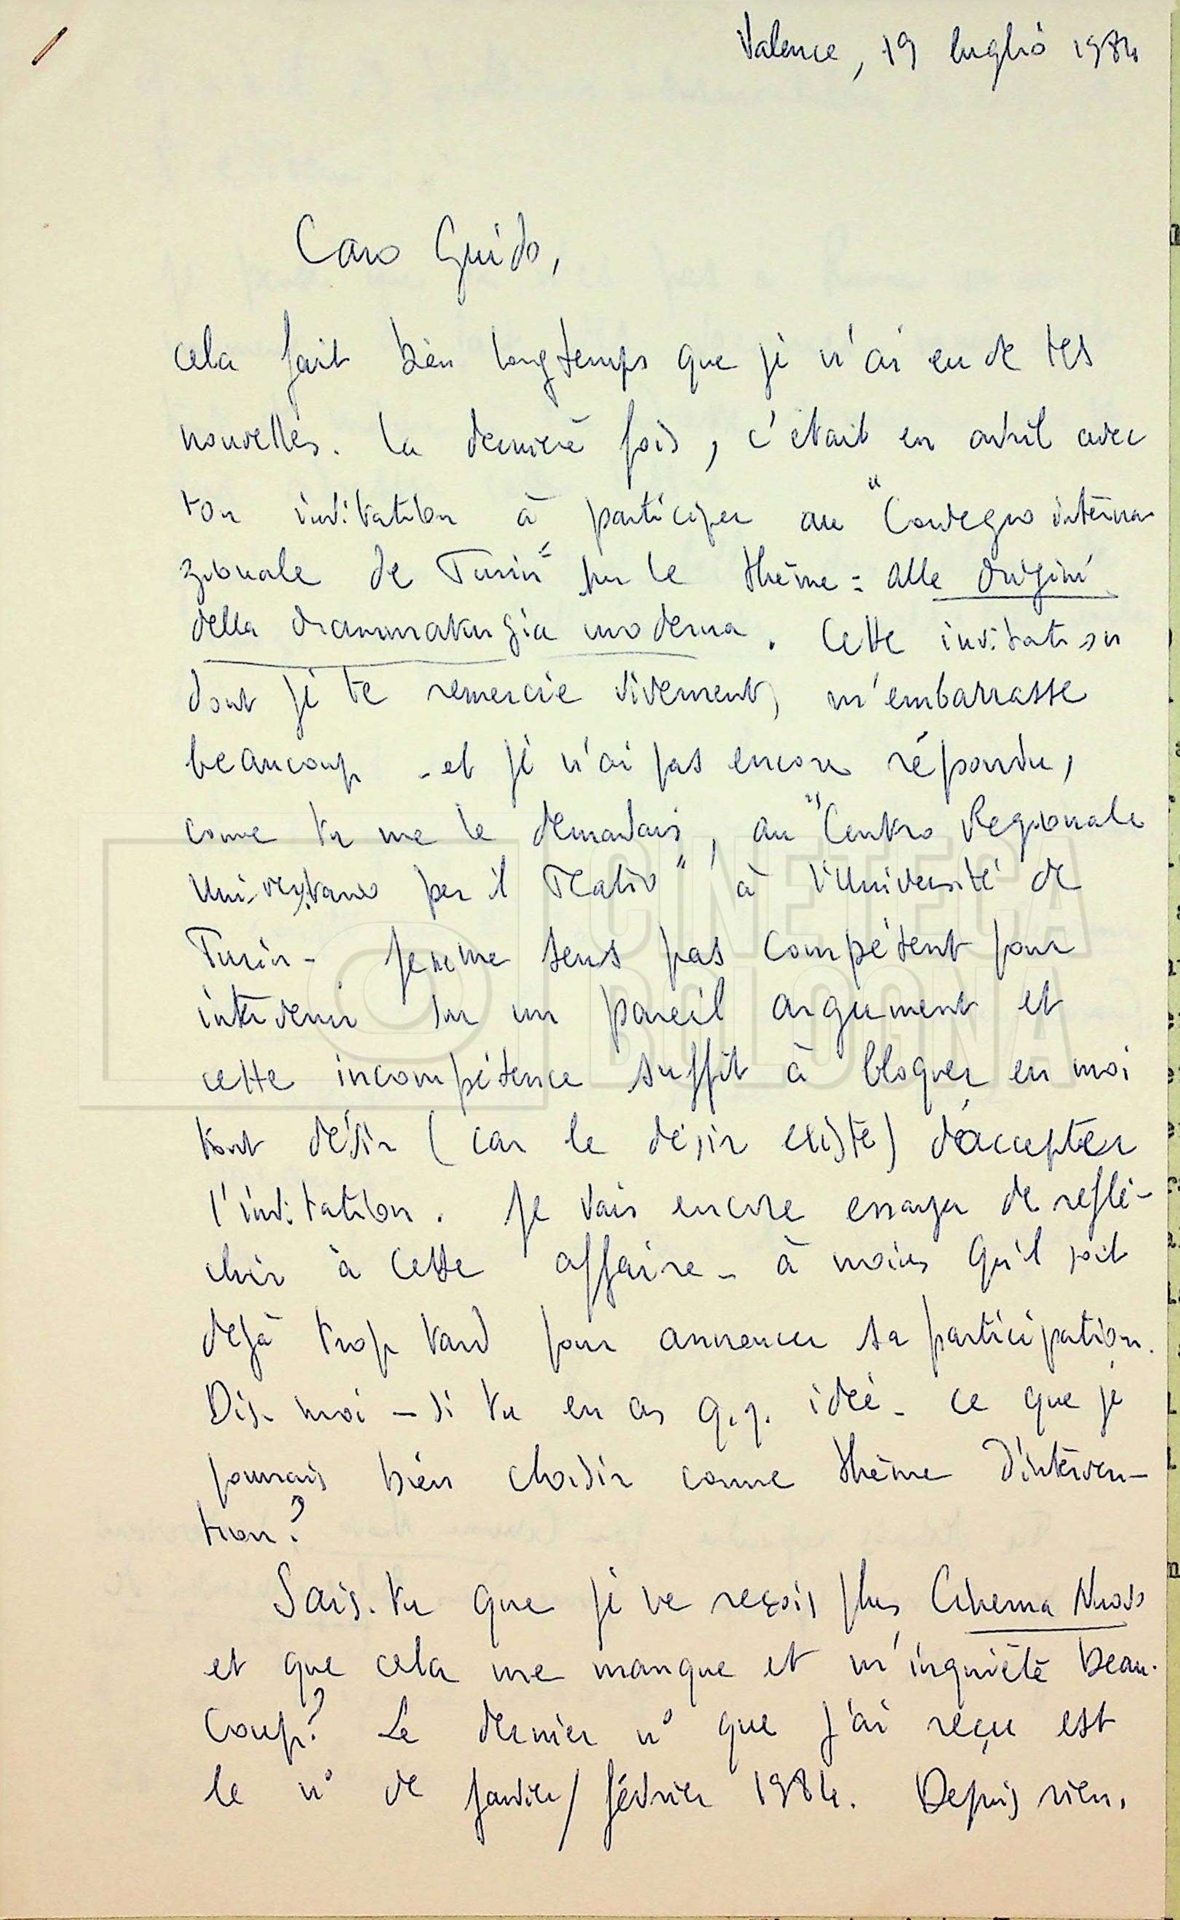 Valence, 19 luglio 1984
Caro Guido,
cela fait bien longtemps que je n'ai eu de tes
nouvelles. La dernière fois, c'était en avril avec
ton invitation à participer au "Convegno interna
zionale de Turin" sur le thème : alle origini
della drammaturgia moderna. Cette invitation
dont je te remercie vivement, m'embarrasse
beaucoup - et je n'ai pas encore répondu,
comme tu me le demandais, au "Centro Regionale
Universitario per il Teatro" à l'Université de
Turin - Je ne me sens pas compétent pour
intervenir sur un pareil argument et
cette incompétence suffit à bloquer en moi
tout désir (car le désir existe) d'accepter
l'invitation. Je vais encore essayer de réflé-
chir à cette affaire - à moins qu'il soit
déjà trop tard pour annoncer sa participation.
Dis-moi - si tu en as q.q. idée - ce que je
pourrais bien choisir comme thème d'interven-
tion?
Sais-tu que je ne reçois plus Cinema Nuovo
et que cela me manque et m'inquiète beau-
coup? Le dernier n° que j'ai reçu est
le n° de janvier/février 1984. Depuis rien.
CINETECA
BOLOGNA